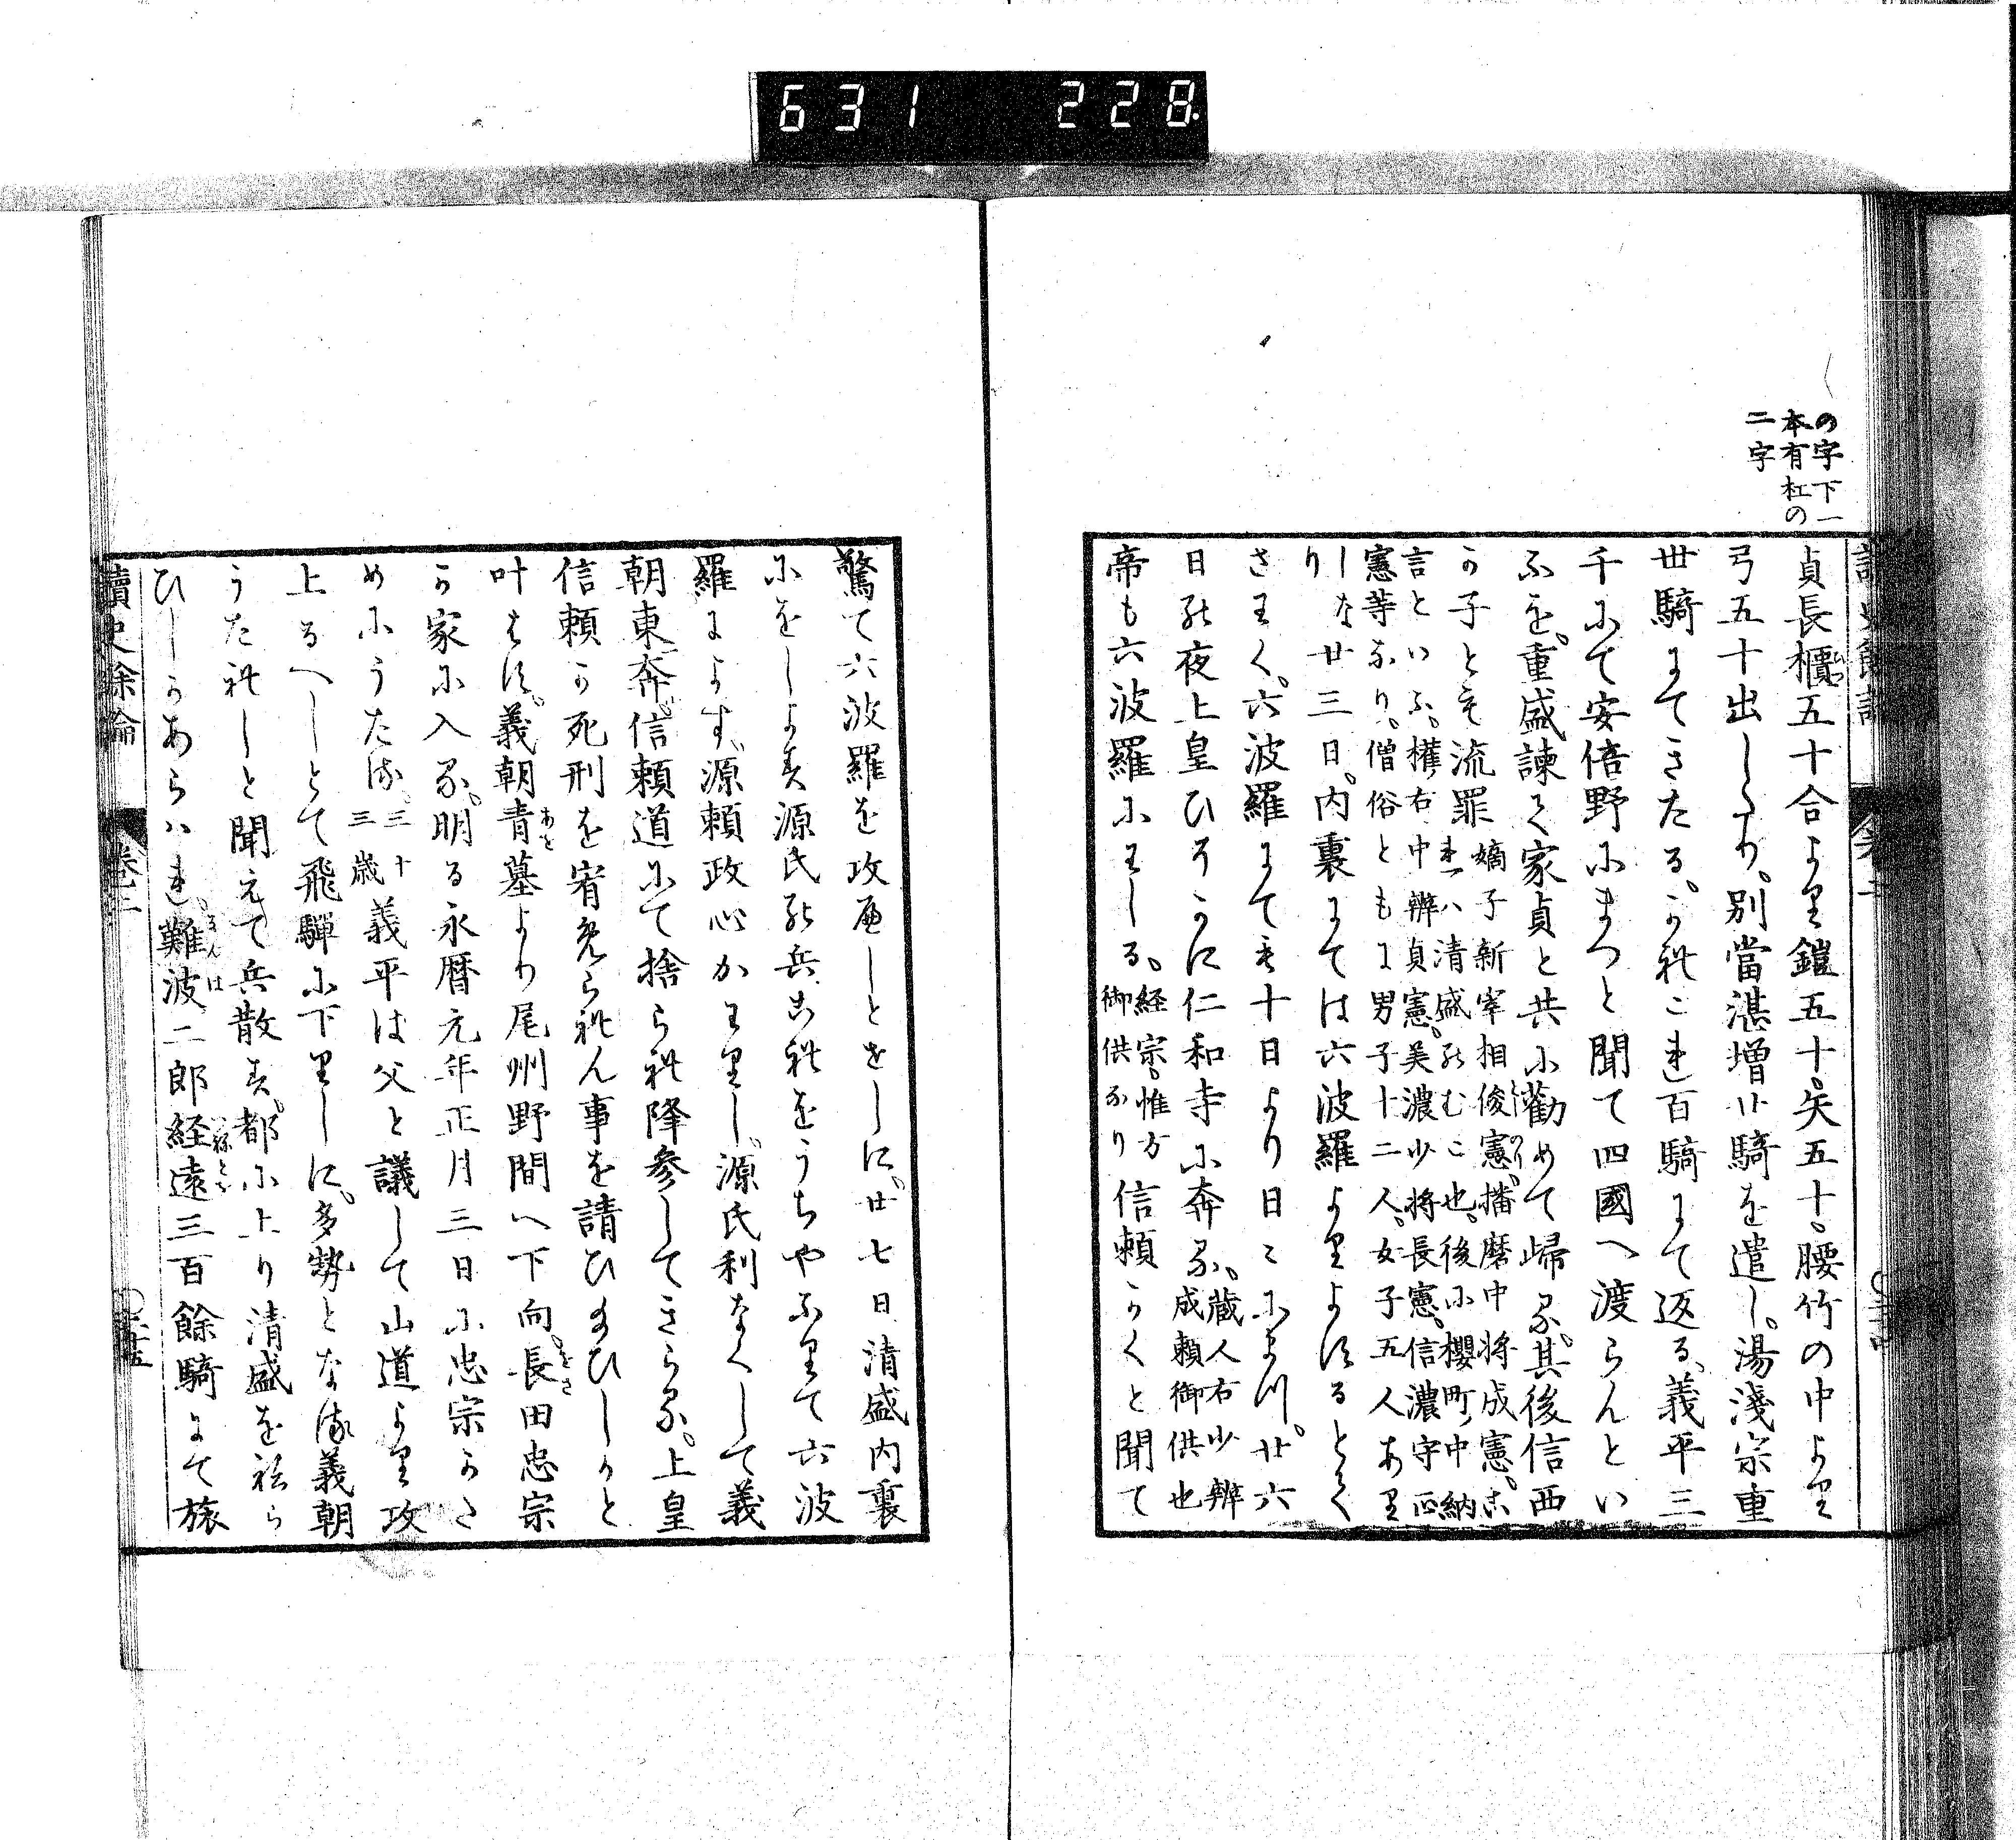 631 228.
の字下一
本有杠の
二字
貞長櫃五十合より鎧五十矢五十腰竹の中より
弓五十出しあり。別當湛増廿騎を遣し。湯淺宗重
丗騎にてきたる。かれこれ百騎にて返る、義平三
千にて安倍野にまつと聞て四國へ渡らんとい
ふを。重盛諫て家貞と共に勸めて歸る。其後信西
の子とも流罪
嫡子新宰相俊憲。播磨中將成憲。こ
れハ清盛のむこ也。後に櫻町中納
言といふ。權右中辨貞憲。美濃少將長憲。信濃守正
憲等なり。僧俗ともに男子十二人。女子五人あり
しな
り
廿三日。内裏にては六波羅よりよするとて
さわく。六波羅にても十日より日〻によつ。廿六
日の夜上皇ひそかに仁和寺に奔る。
藏人右少辨
成頼御供也
帝も六波羅にわしる。
経宗。惟方
御供なり
信頼かくと聞て
驚て六波羅を攻へしとせしに。廿七日清盛内裏
にをしよす源氏の兵これをうちやふりて六波
羅によす。源頼政心かわりし。源氏利なくして義
朝東奔。信頼道にて捨られ降参してきらる。上皇
信頼か死刑を宥免られん事を請ひ給ひしかと
叶はす。義朝青墓より尾州野間へ下向。長田忠宗
か家に入る。明る永暦元年正月三日に忠宗かた
めにうたる。
三十
三歳
義平は父と議して山道より攻
上るへしとて飛騨に下りしに。多勢となる義朝
うたれしと聞えて兵散す。都に上り清盛をねら
ひしかあらハれ。難波二郎経遠三百餘騎にて旅
讀史餘論
卷二